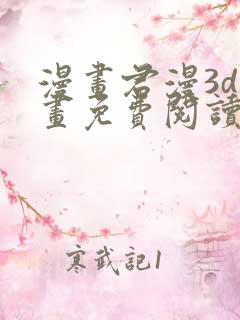 漫畫君漫3d
畫免費閱讀
寒武記1